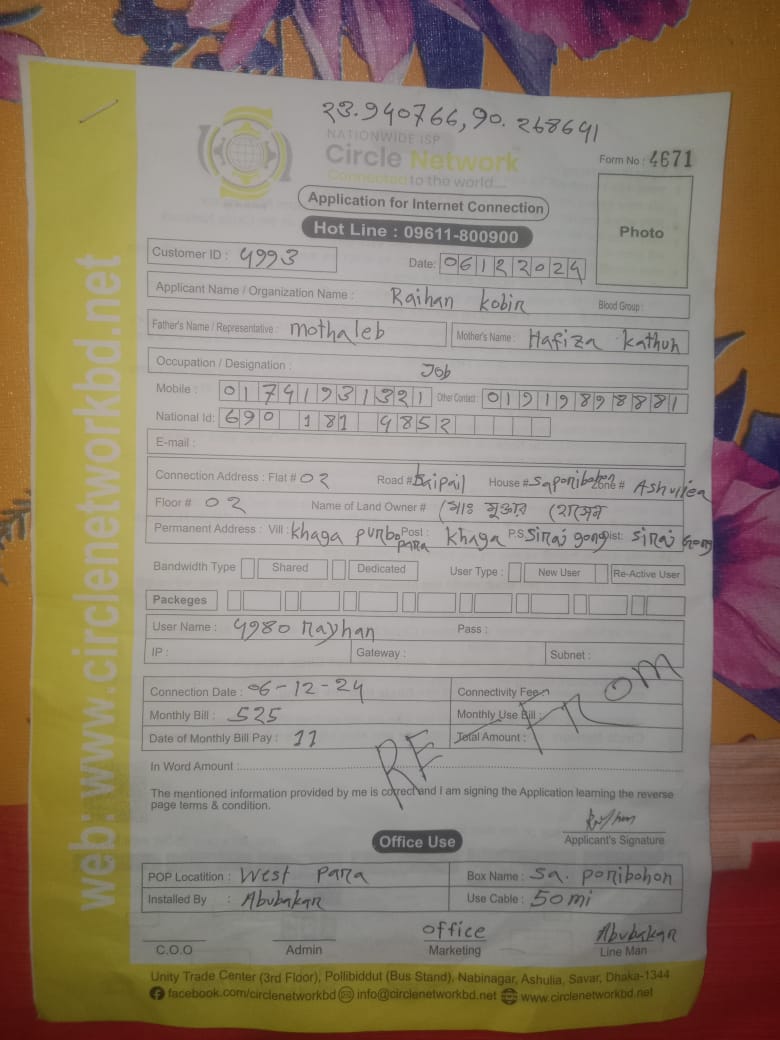 23.940766, 90.268641
NATIONWIDE ISP
Circle Network
Connected to the world....
Form No : 4671
Application for Internet Connection
Hot Line : 09611-800900
Photo
Customer ID : 4993
Date: 06122024
Applicant Name / Organization Name : Raihan kobir Blood Group :
Father's Name / Representative : mothaleb Mother's Name : Hafiza kathun
Occupation / Designation : Job
Mobile : 01741931321 Other Contact : 01919898881
National Id: 690 181 4852
E-mail :
Connection Address : Flat # 02 Road # Baipail House # saponibohon Zone # Ashuliea
Floor # 02 Name of Land Owner # মোঃ মুক্তার হোসেন
Permanent Address : Vill : khaga purbo para Post : khaga P.S Siraj gong Dist: siraj Gong
Bandwidth Type Shared Dedicated User Type : New User Re-Active User
Packeges
User Name : 4980 rayhan Pass :
IP : Gateway : Subnet :
Connection Date : 06-12-24 Connectivity Fee
Monthly Bill : 525 Monthly Use Bill :
Date of Monthly Bill Pay : 11 Total Amount :
RE-From
In Word Amount :
The mentioned information provided by me is correct and I am signing the Application learning the reverse
page terms & condition.
Applicant's Signature
Office Use
POP Locatition : West para Box Name : sa. ponibohon
Installed By : Abubakar Use Cable : 50 mi
office Abubakar
C.O.O Admin Marketing Line Man
Unity Trade Center (3rd Floor), Pollibiddut (Bus Stand), Nabinagar, Ashulia, Savar, Dhaka-1344
facebook.com/circlenetworkbd info@circlenetworkbd.net www.circlenetworkbd.net
web: www.circlenetworkbd.net